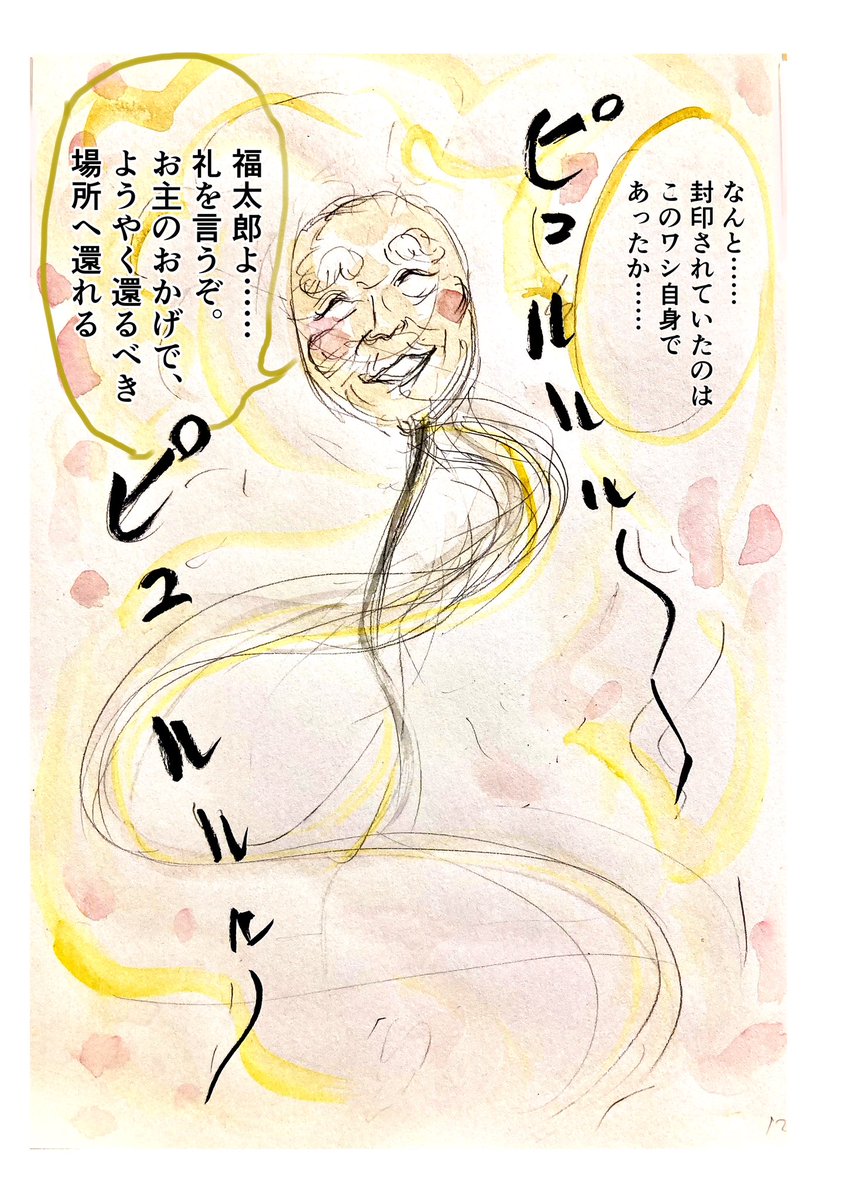 なんと……
封印されていたのは
このワシ自身で
あったか……
ピュルルル〜
福太郎よ……
礼を言うぞ。
お主のおかげで、
ようやく還るべき
場所へ還れる
ピュルルルル〜
12